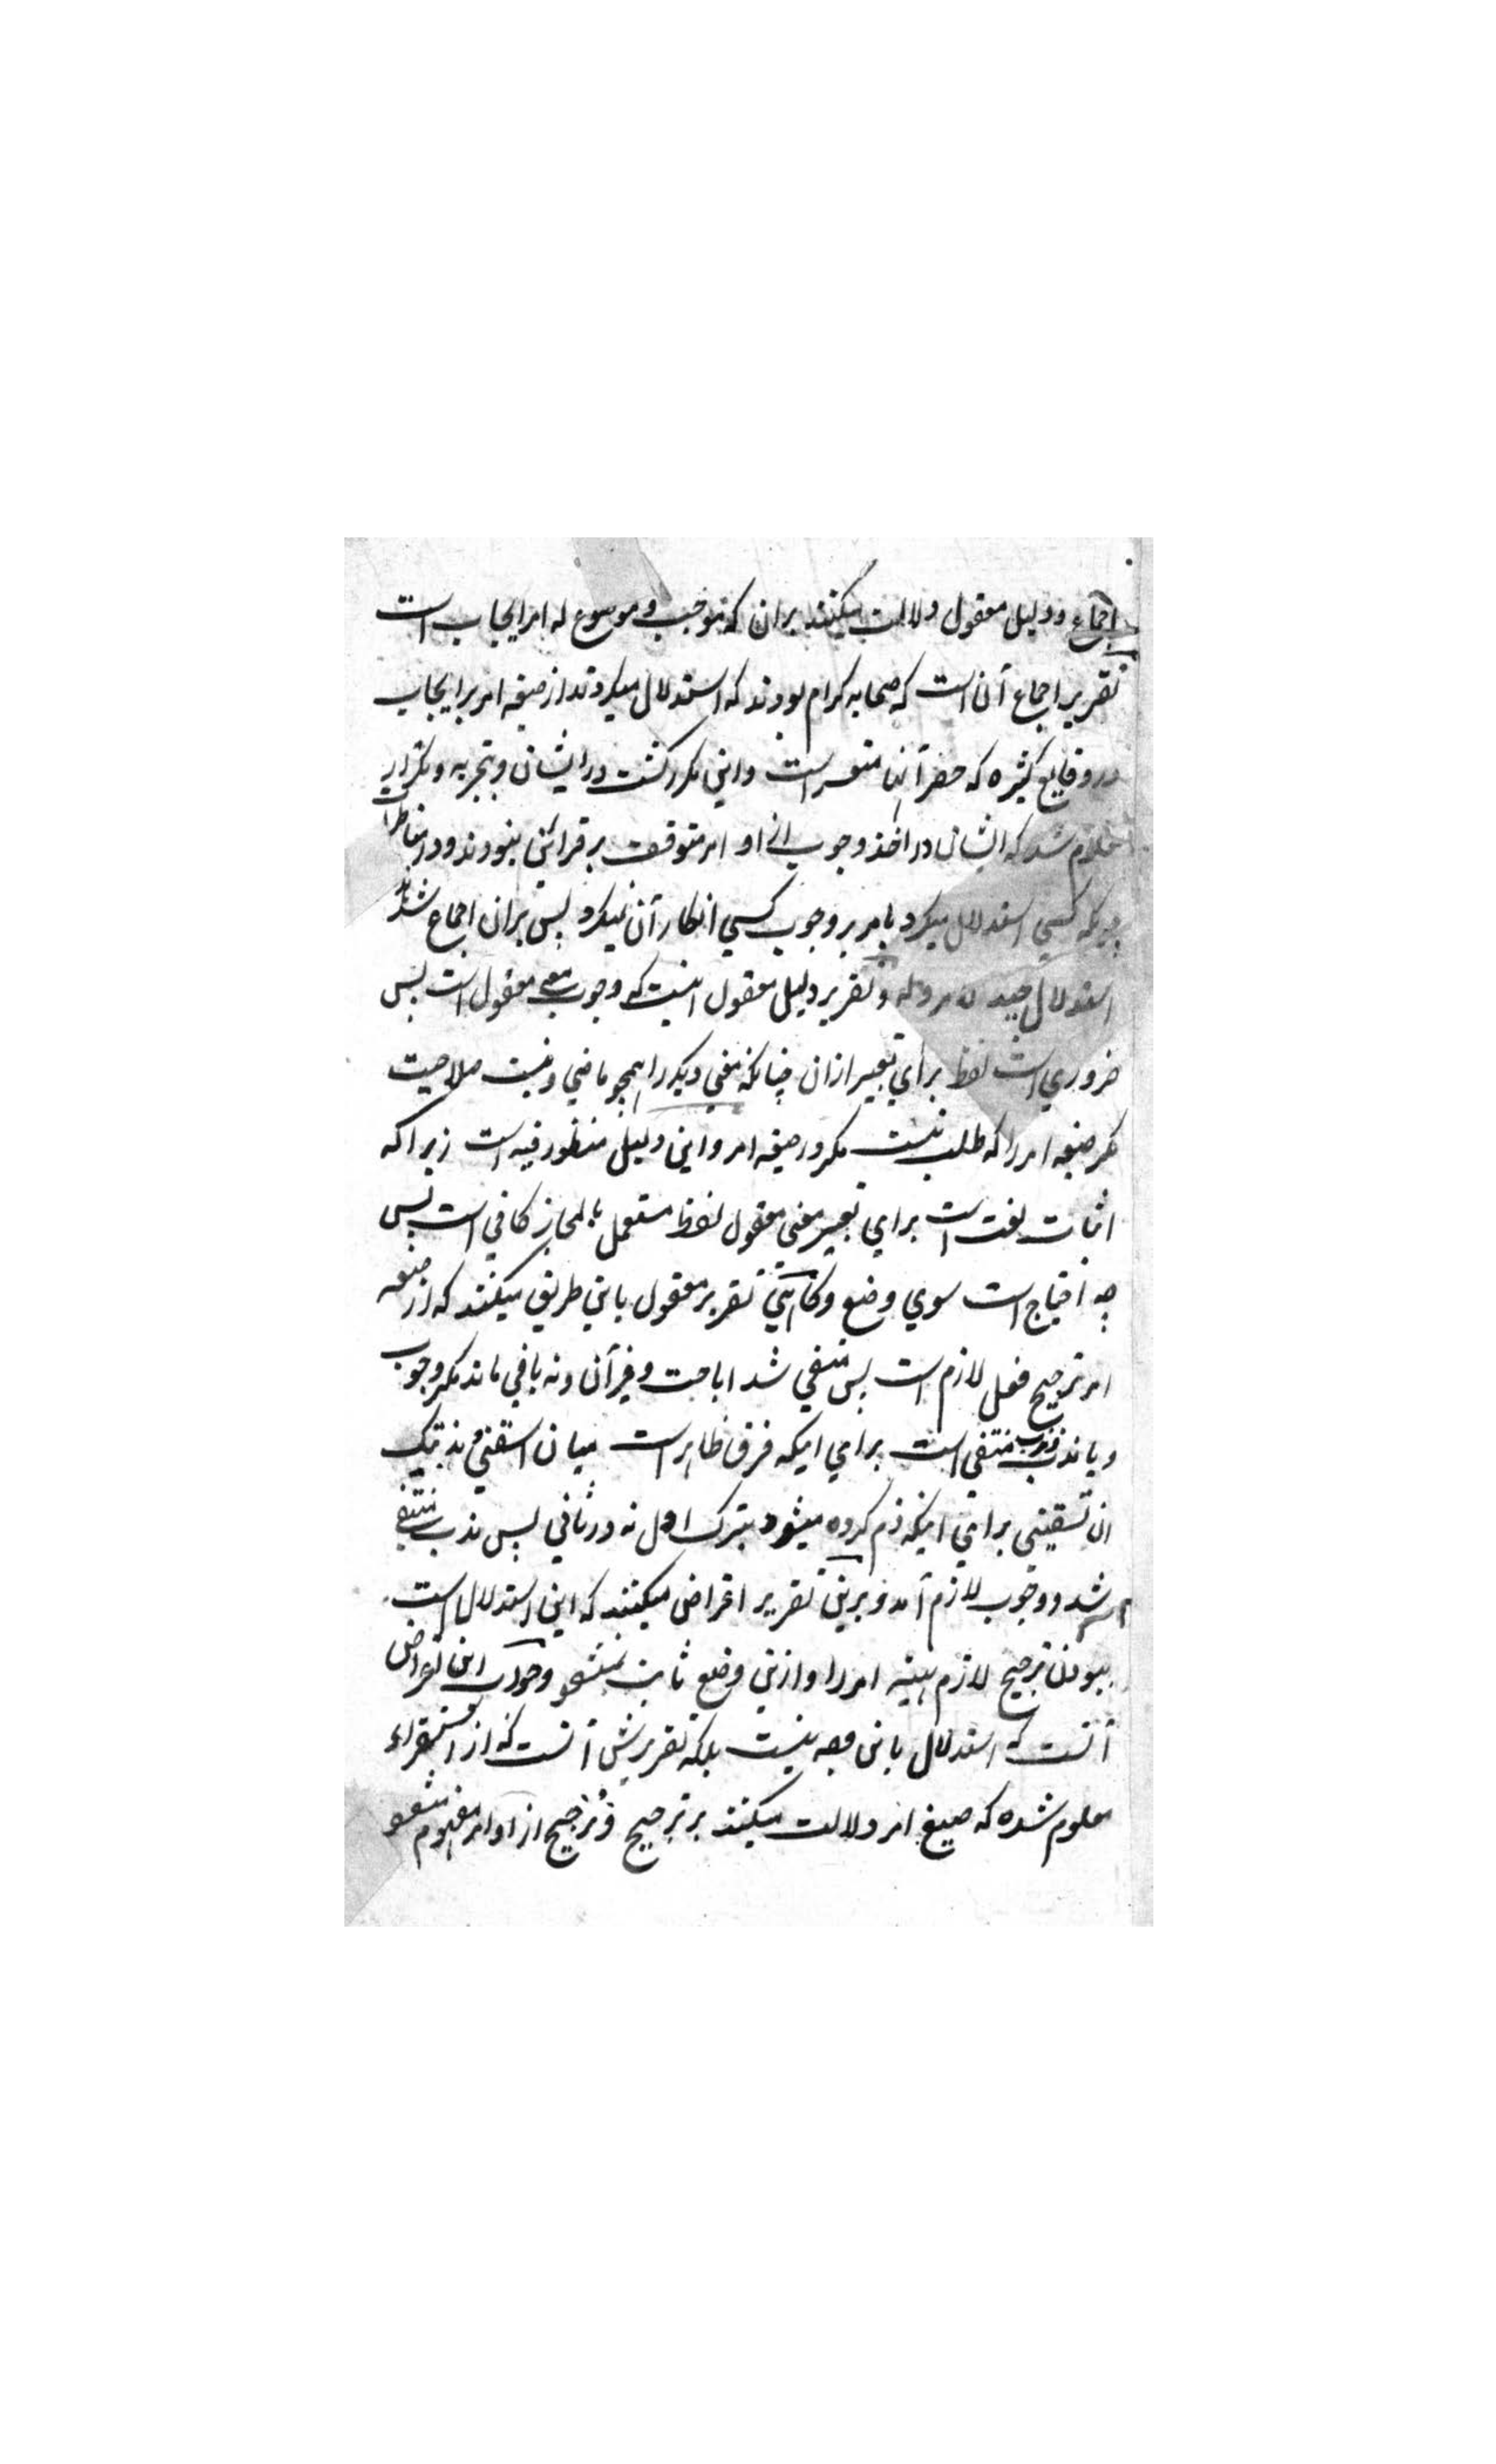 اجماع ودلیل معقول دلالت میکنند بران که موجب وموضوع له امر ایجاب است
تقریر اجماع آن است که صحابه کرام بودند که استدلال میکردند از صیغه امر بر ایجاب
در وقایع کثیره که حصر آنها متعسر است واین مکرر گشت در ایشان وبتجربه وتکرار
معلوم شد که ایشان در اخذ وجوب از اوامر متوقف بر قراین نبودند ودر مناظرات
هر یکه کسی استدلال میکرد بامر بر وجوب کسی انکار آن نمیکرد پس بران اجماع شد
استدلال وتقریر دلیل معقول اینست که وجوب معنی معقول است پس
ضروری است لفظ برای تعبیر ازان چنانکه معنی دیگر را همچو ماضی ونیست صلاحیت
مگر صیغه امر را که طلب نیست مگر در صیغه امر واین دلیل منظور فیه است زیرا که
اثبات لغت است برای تعبیر معنی معقول لفظ مستعمل بالمجاز کافی است پس
چه احتیاج است سوی وضع وکاهی تقریر معقول باین طریق میکنند که از صیغه
امر ترجیح فعل لازم است پس منتفی شد اباحت و ونه باقی ماند مگر وجوب
ویا ندب وندب منتفی است برای اینکه فرق ظاهر است میان اسقنی و ندبتک
ان تسقینی برای اینکه ذم کرده میشود بترک اول نه در ثانی پس ندب منتفی
شد ووجوب لازم آمد وبرین تقریر اعتراض میکنند که این استدلال است
ببودن ترجیح لازم امر را وازین وضع ثابت نمیشود وجواب این اعتراض
آنست که استدلال باین وجه نیست بلکه تقریرش آنست که از استقراء
معلوم شده که صیغ امر دلالت میکنند بر ترجیح وترجیح از اوامر مفهوم میشود